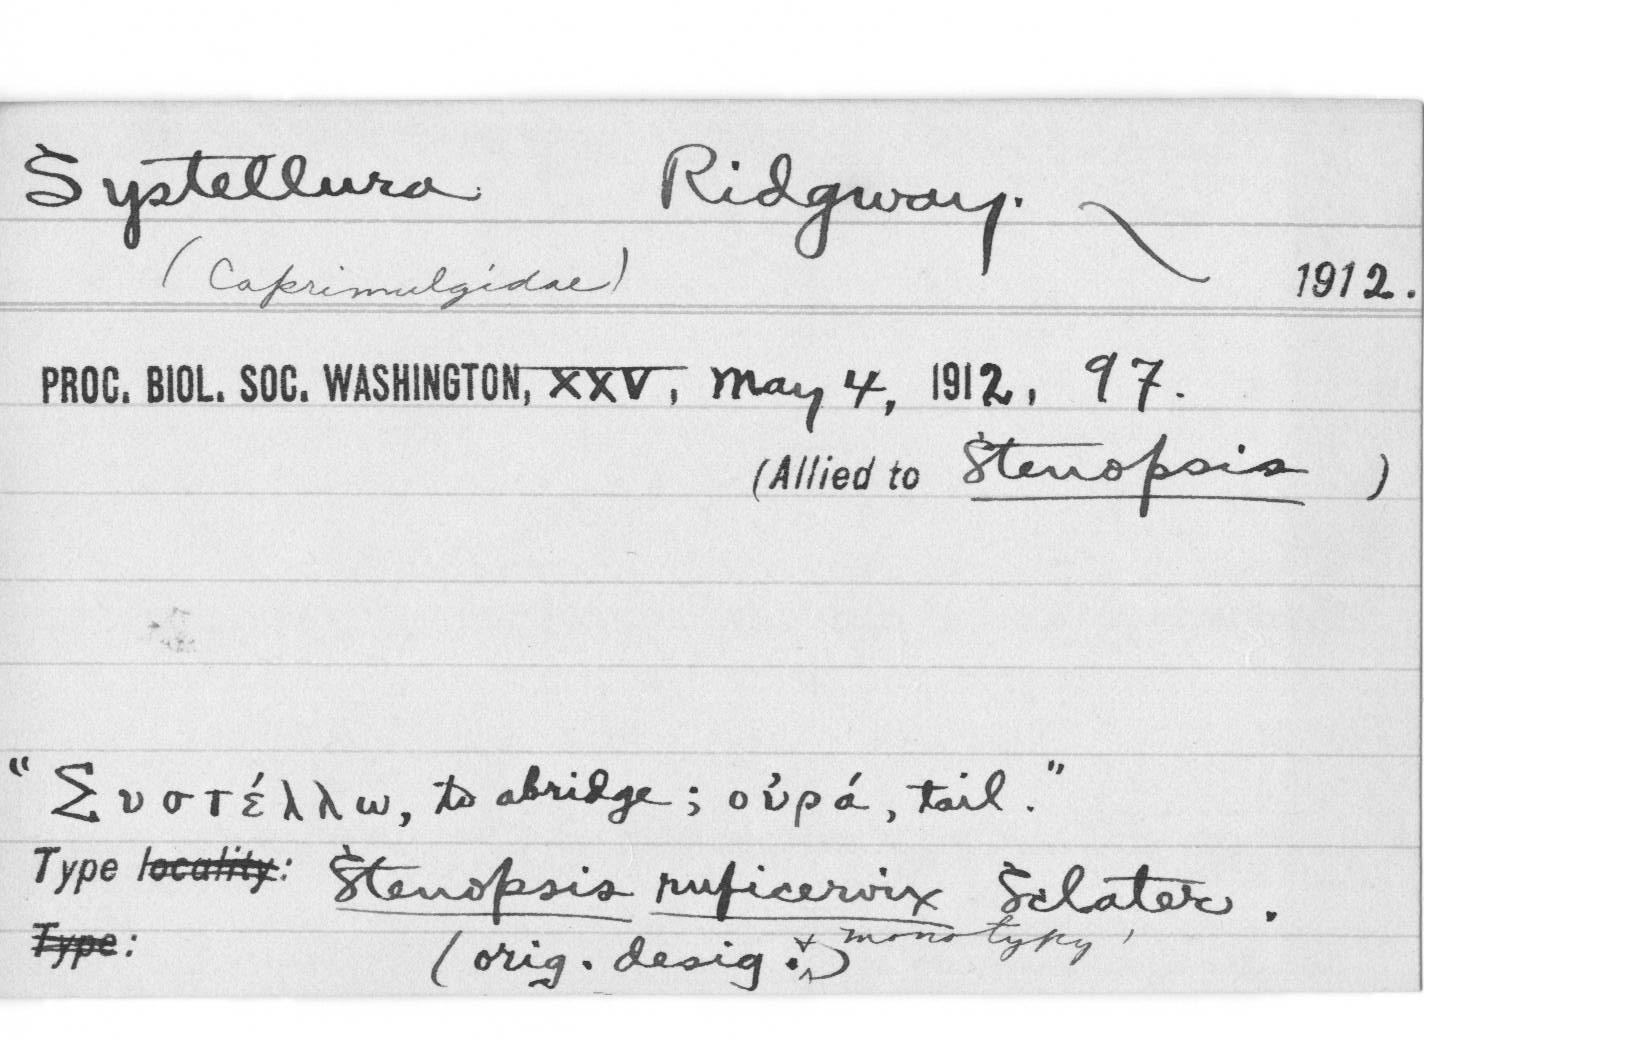 Systellura Ridgway.
(Caprimulgidae) 1912.
PROC. BIOL. SOC. WASHINGTON, XXV, May 4, 1912, 97.
(Allied to Stenopsis )
"Συστέλλω, to abridge; οὐρά, tail."
Type locality: Stenopsis ruficervix Sclater.
Type: (orig. desig. + monotypy)